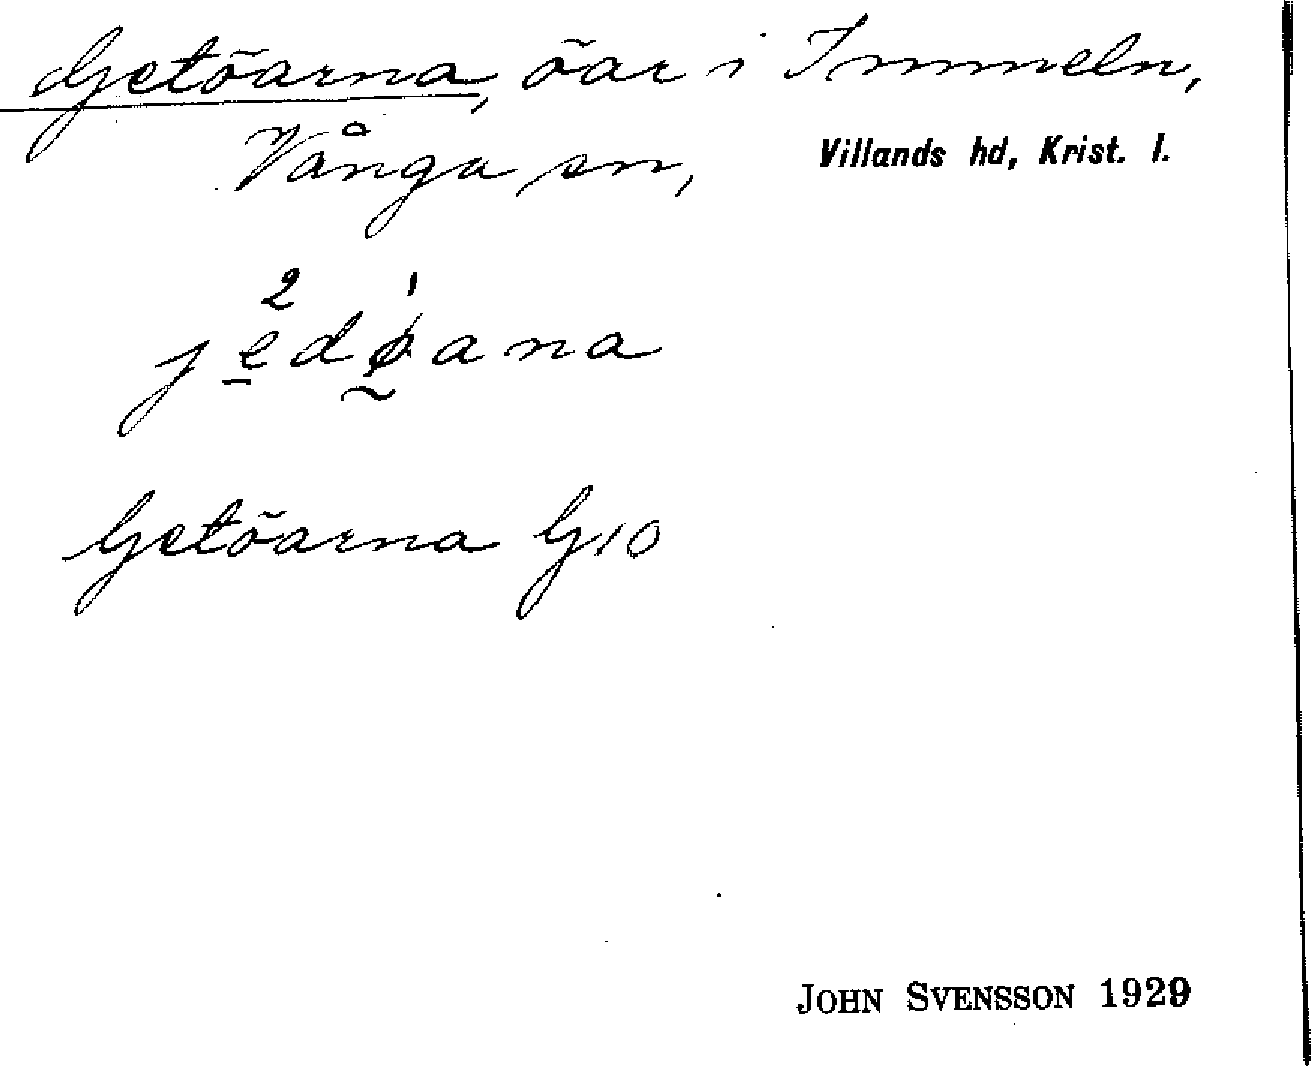 Getöarna, öar i Immeln,
Vånga sn,
Villands hd, Krist. l.
2 ˈ
j e̠ d ø̰ a n a
Getöarna G10
JOHN SVENSSON 1929